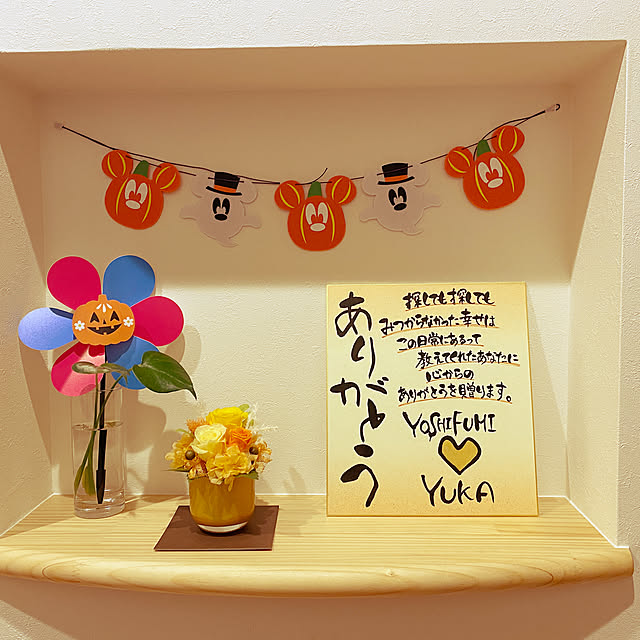 ありがとう
探しても探しても
みつからなかった幸せは
この日常にあるって
教えてくれたあなたに
心からの
ありがとうを贈ります。
YOSHIFUMI
YUKA